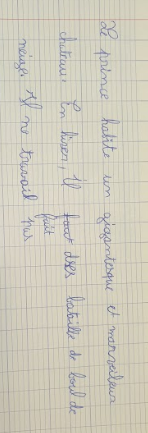 Le prince habite un gigantesque et marveilleux
chateau. En hiver, il fait dses bataille de boul de
neige. Il ne travail pas